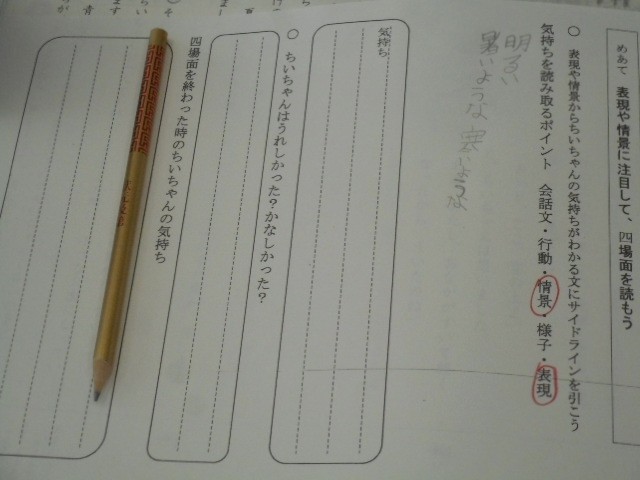 めあて 表現や情景に注目して、四場面を読もう
○ 表現や情景からちいちゃんの気持ちがわかる文にサイドラインを引こう
気持ちを読み取るポイント 会話文・行動・情景・様子・表現
明るい
暑いような 寒いような
気持ち
○ ちいちゃんはうれしかった?かなしかった?
四場面を終わった時のちいちゃんの気持ち